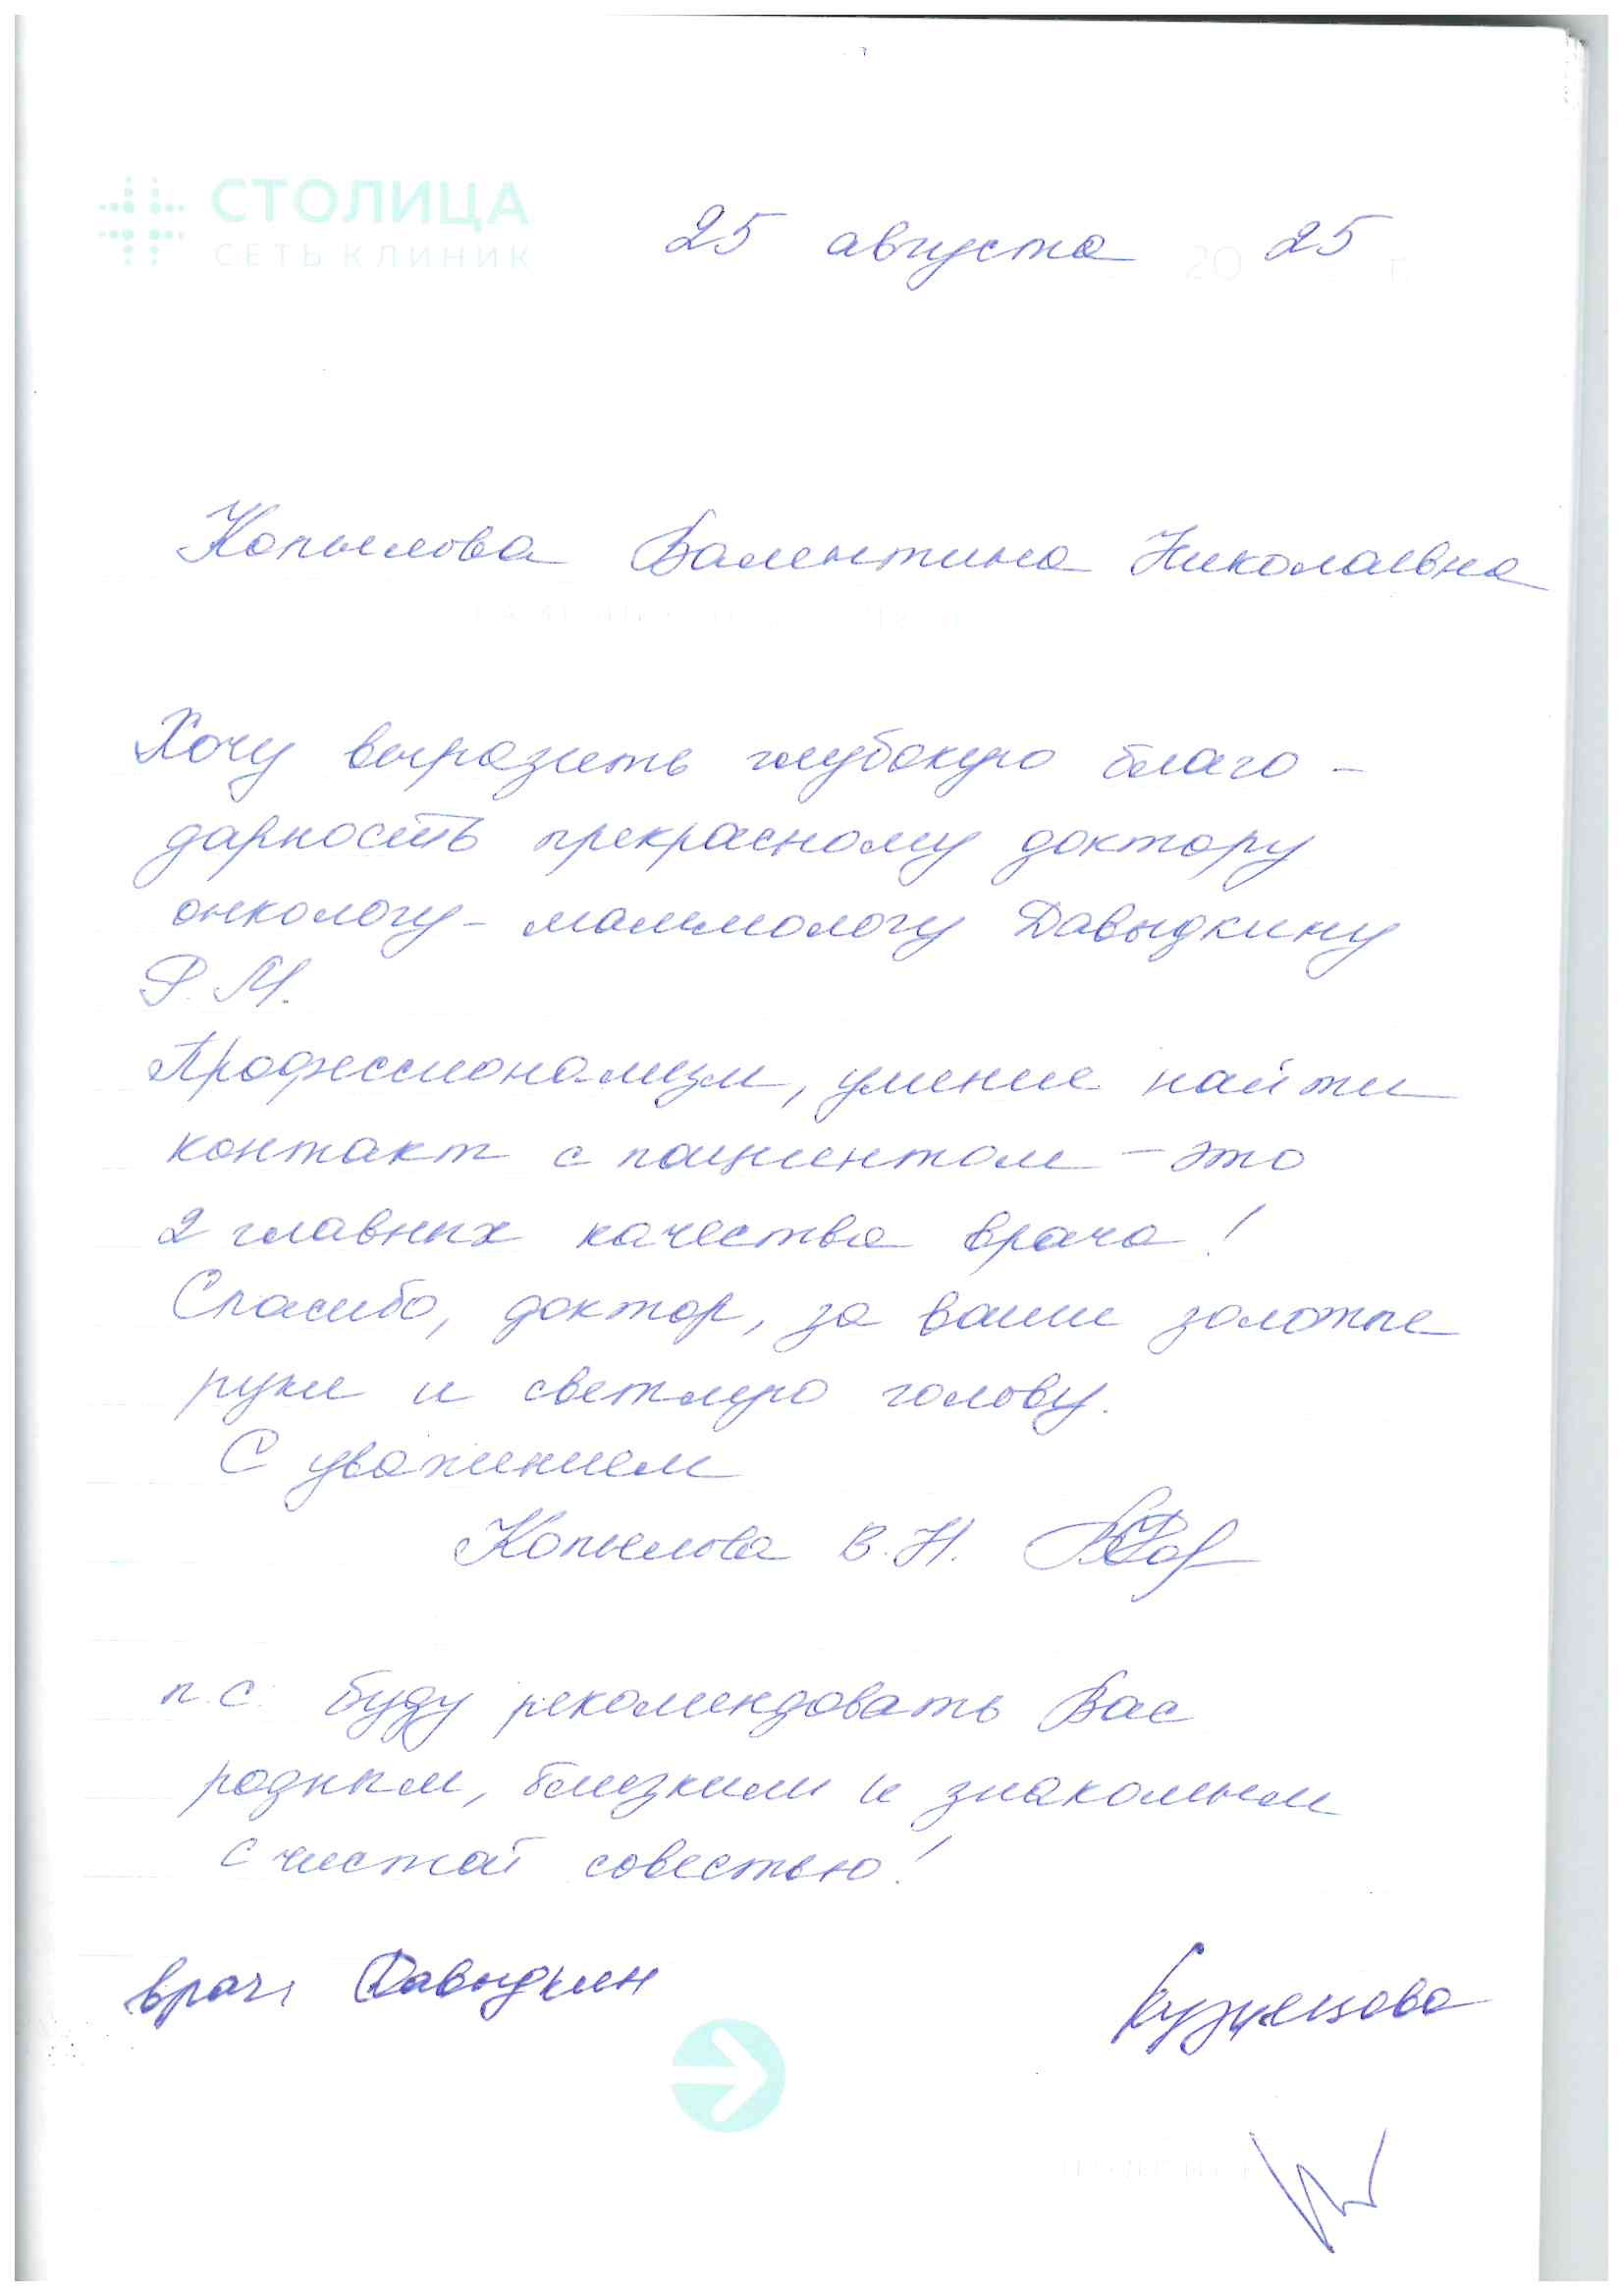 СТОЛИЦА
СЕТЬ КЛИНИК
25 августа 20 25 г
Копылова Валентина Николаевна
Хочу выразить глубокую благо -
дарность прекрасному доктору
онкологу - маммологу Давыдкину
Р. М.
Профессионализм, умение найти
контакт с пациентом - это
2 главных качества врача!
Спасибо, доктор, за ваши золотые
руки и светлую голову.
С уважением
Копылова В. Н.
п. с. буду рекомендовать Вас
родным, близким и знакомым
с чистой совестью!
врач: Давыдкин
Кузнецова